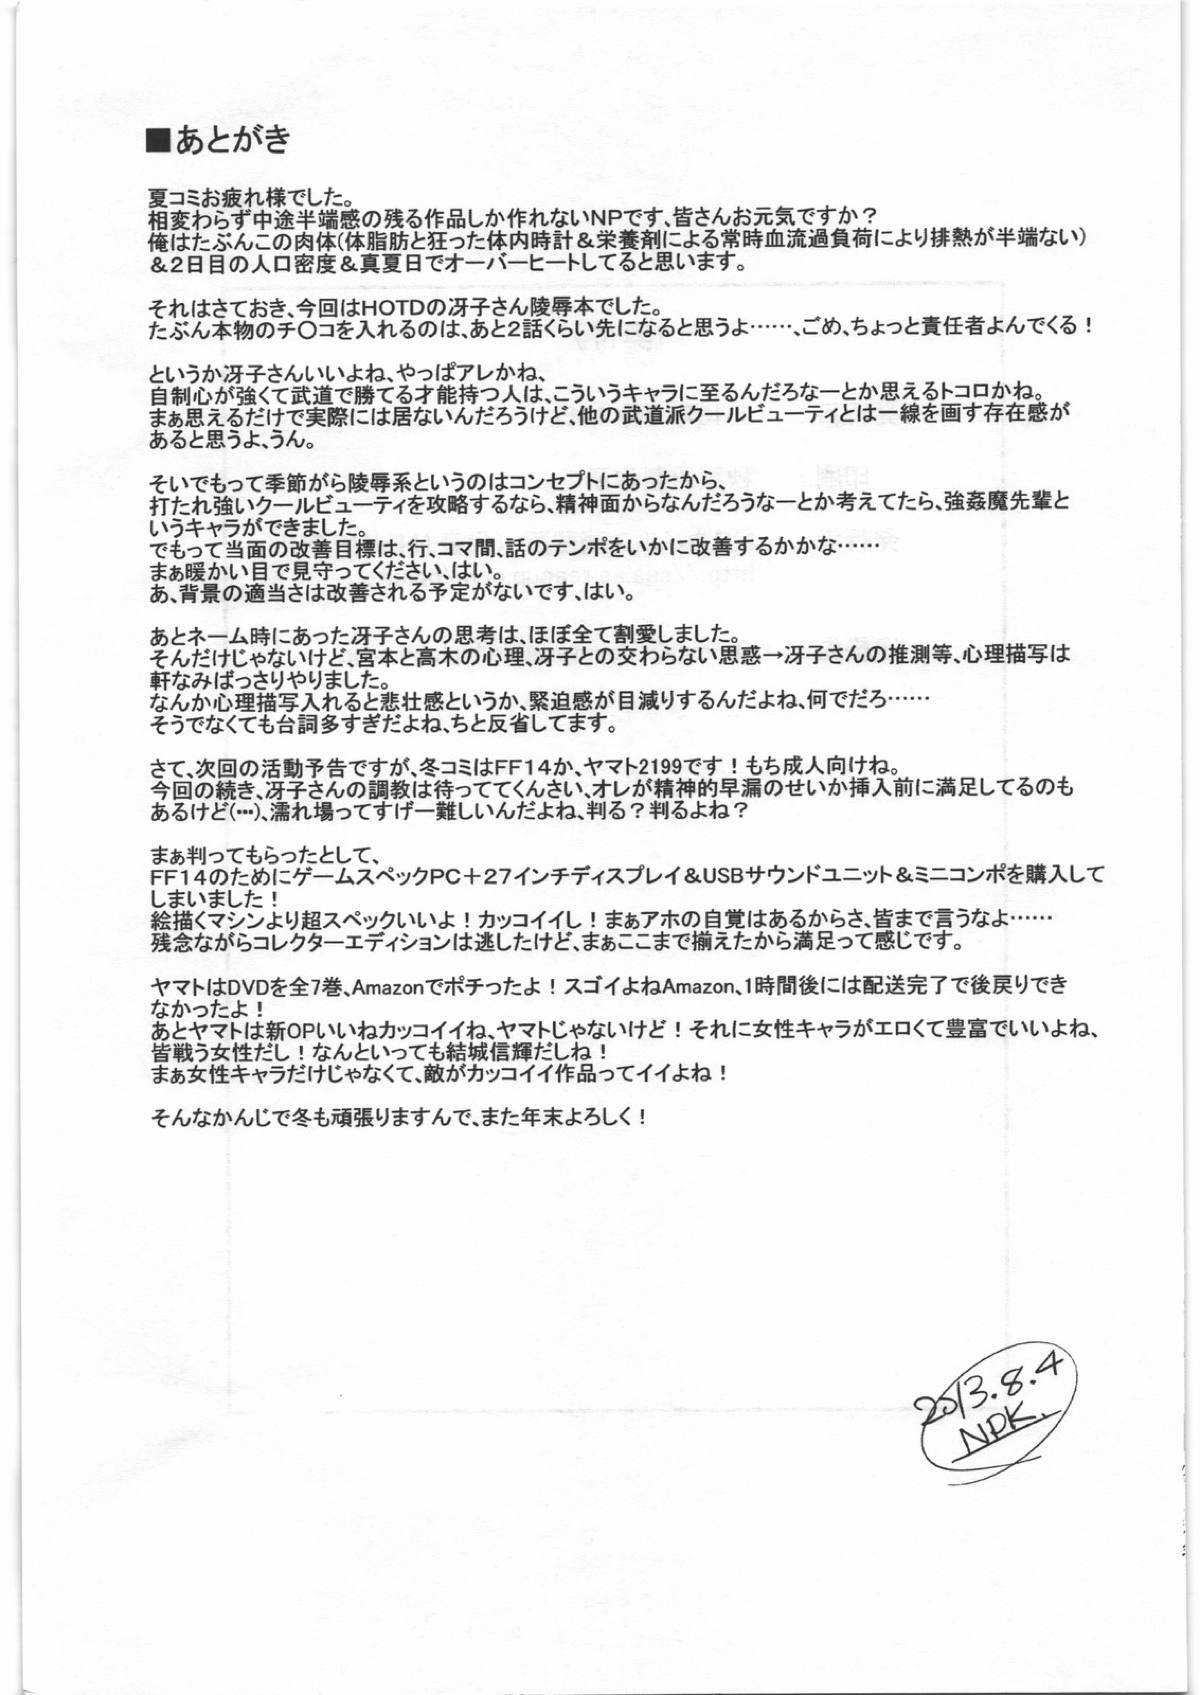 ■あとがき
夏コミお疲れ様でした。
相変わらず中途半端感の残る作品しか作れないNPです、皆さんお元気ですか？
俺はたぶんこの肉体(体脂肪と狂った体内時計＆栄養剤による常時血流過負荷により排熱が半端ない)
＆2日目の人口密度＆真夏日でオーバーヒートしてると思います。
それはさておき、今回はHOTDの冴子さん陵辱本でした。
たぶん本物のチ○コを入れるのは、あと2話くらい先になると思うよ……、ごめ、ちょっと責任者よんでくる！
というか冴子さんいいよね、やっぱアレかね、
自制心が強くて武道で勝てる才能持つ人は、こういうキャラに至るんだろなーとか思えるトコロかね。
まぁ思えるだけで実際には居ないんだろうけど、他の武道派クールビューティとは一線を画す存在感が
あると思うよ、うん。
そいでもって季節がら陵辱系というのはコンセプトにあったから、
打たれ強いクールビューティを攻略するなら、精神面からなんだろうなーとか考えてたら、強姦魔先輩と
いうキャラができました。
でもって当面の改善目標は、行、コマ間、話のテンポをいかに改善するかかな……
まぁ暖かい目で見守ってください、はい。
あ、背景の適当さは改善される予定がないです、はい。
あとネーム時にあった冴子さんの思考は、ほぼ全て割愛しました。
そんだけじゃないけど、宮本と高木の心理、冴子との交わらない思惑→冴子さんの推測等、心理描写は
軒なみばっさりやりました。
なんか心理描写入れると悲壮感というか、緊迫感が目減りするんだよね、何でだろ……
そうでなくても台詞多すぎだよね、ちと反省してます。
さて、次回の活動予告ですが、冬コミはFF14か、ヤマト2199です！もち成人向けね。
今回の続き、冴子さんの調教は待っててくんさい、オレが精神的早漏のせいか挿入前に満足してるのも
あるけど(…)、濡れ場ってすげー難しいんだよね、判る？判るよね？
まぁ判ってもらったとして、
FF14のためにゲームスペックPC＋27インチディスプレイ＆USBサウンドユニット＆ミニコンポを購入して
しまいました！
絵描くマシンより超スペックいいよ！カッコイイし！まぁアホの自覚はあるからさ、皆まで言うなよ……
残念ながらコレクターエディションは逃したけど、まぁここまで揃えたから満足って感じです。
ヤマトはDVDを全7巻、Amazonでポチったよ！スゴイよねAmazon、1時間後には配送完了で後戻りでき
なかったよ！
あとヤマトは新OPいいねカッコイイね、ヤマトじゃないけど！それに女性キャラがエロくて豊富でいいよね、
皆戦う女性だし！なんといっても結城信輝だしね！
まぁ女性キャラだけじゃなくて、敵がカッコイイ作品ってイイよね！
そんなかんじで冬も頑張りますんで、また年末よろしく！
2013.8.4
NPK.